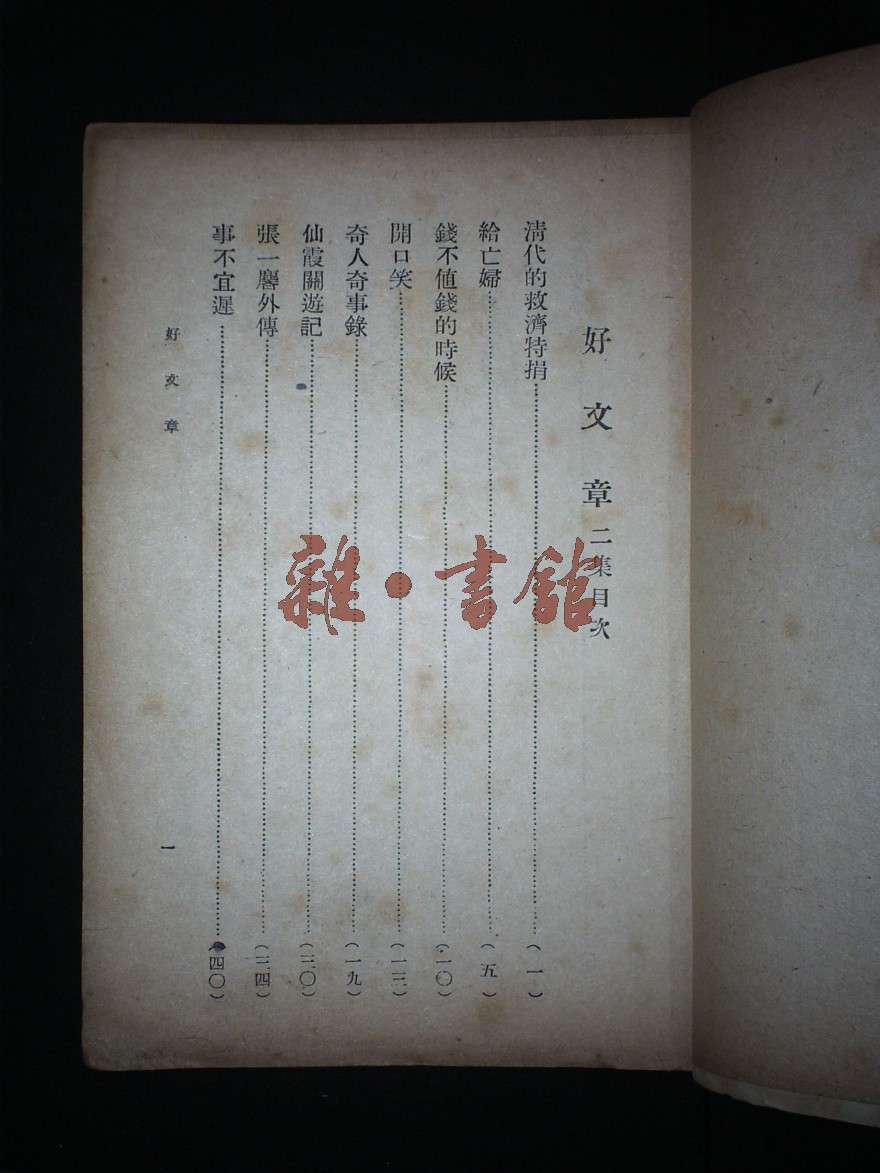 好文章二集目次
清代的救濟特捐……(一)
給亡婦……(五)
錢不值錢的時候……(一〇)
開口笑……(一三)
奇人奇事錄……(一九)
仙霞關遊記……(三〇)
張一麐外傳……(三四)
事不宜遲……(四〇)
好文章
一
雜·書館